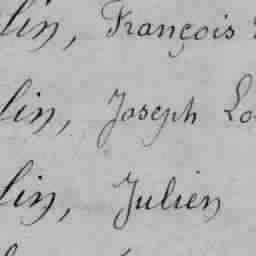 lin, François
lin, Joseph Lo
lin, Julien